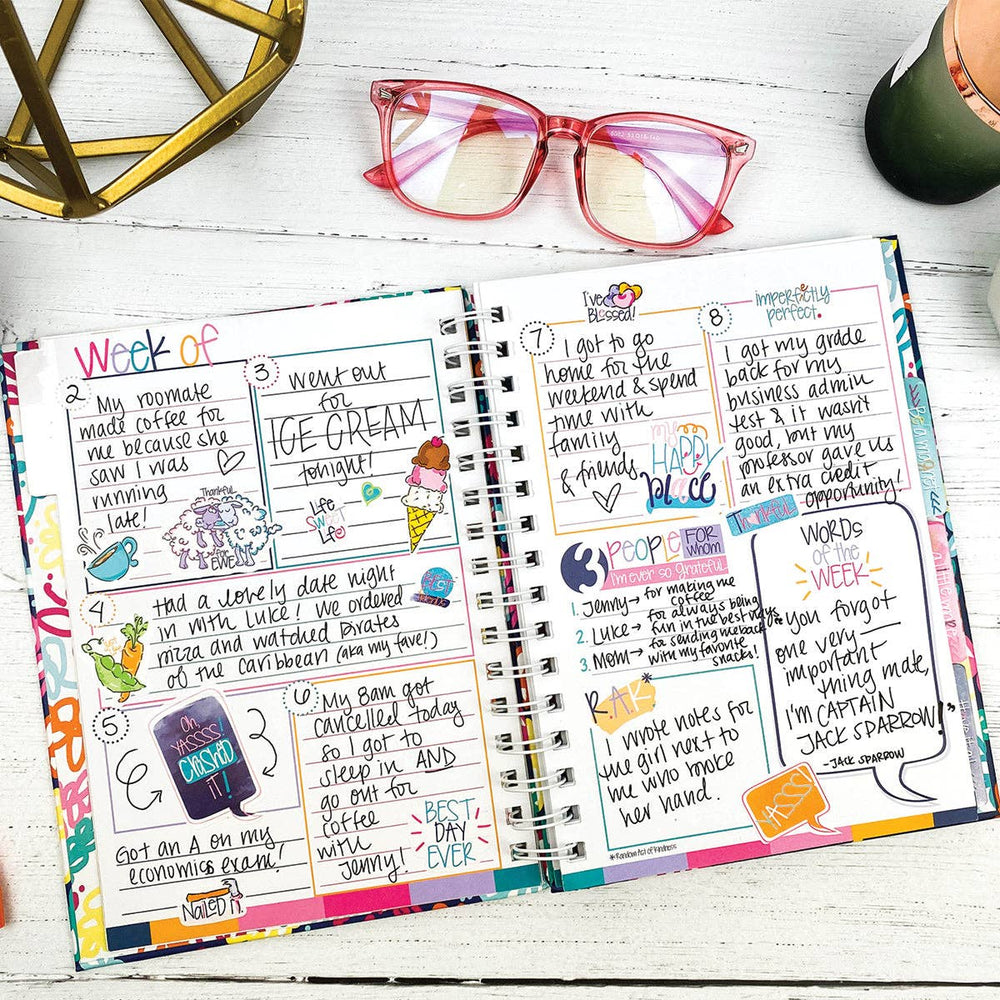 Week of
2
My roomate
made coffee for
me because she
saw I was
running
late!
Thankful
for
EWE
3
Went out
for
ICE CREAM
tonight!
Life
SWEET
Life
4
Had a lovely date night
in with Luke! We ordered
pizza and watched Pirates
of the Caribbean (aka my fave!)
BEST
5
Oh,
YASSSS!
CRUSHED
IT!
Got an A on my
economics exam!
NAILED IT.
6
My 8am got
cancelled today
so I got to
sleep in AND
go out for
coffee
with
Jenny!
BEST
DAY
EVER
I've
Blessed!
7
I got to go
home for the
weekend & spend
time with
family
& friends
my
HAPPY
place
8
imperfectly
perfect.
I got my grade
back for my
business admin
test & it wasn't
good, but my
professor gave us
an extra credit
opportunity!
Thankful
3 PEOPLE FOR
whom
I'm ever so grateful
1. Jenny → for making me
coffee
2. Luke → for always being
fun in the best ways
3. Mom → for sending me back
with my favorite
snacks!
R.A.K*
I wrote notes for
the girl next to
me who broke
her hand.
*Random Act of Kindness
YASSS!
WORDS
of the
WEEK
"you forgot
one very
important
thing mate,
I'M CAPTAIN
JACK SPARROW!"
-JACK SPARROW